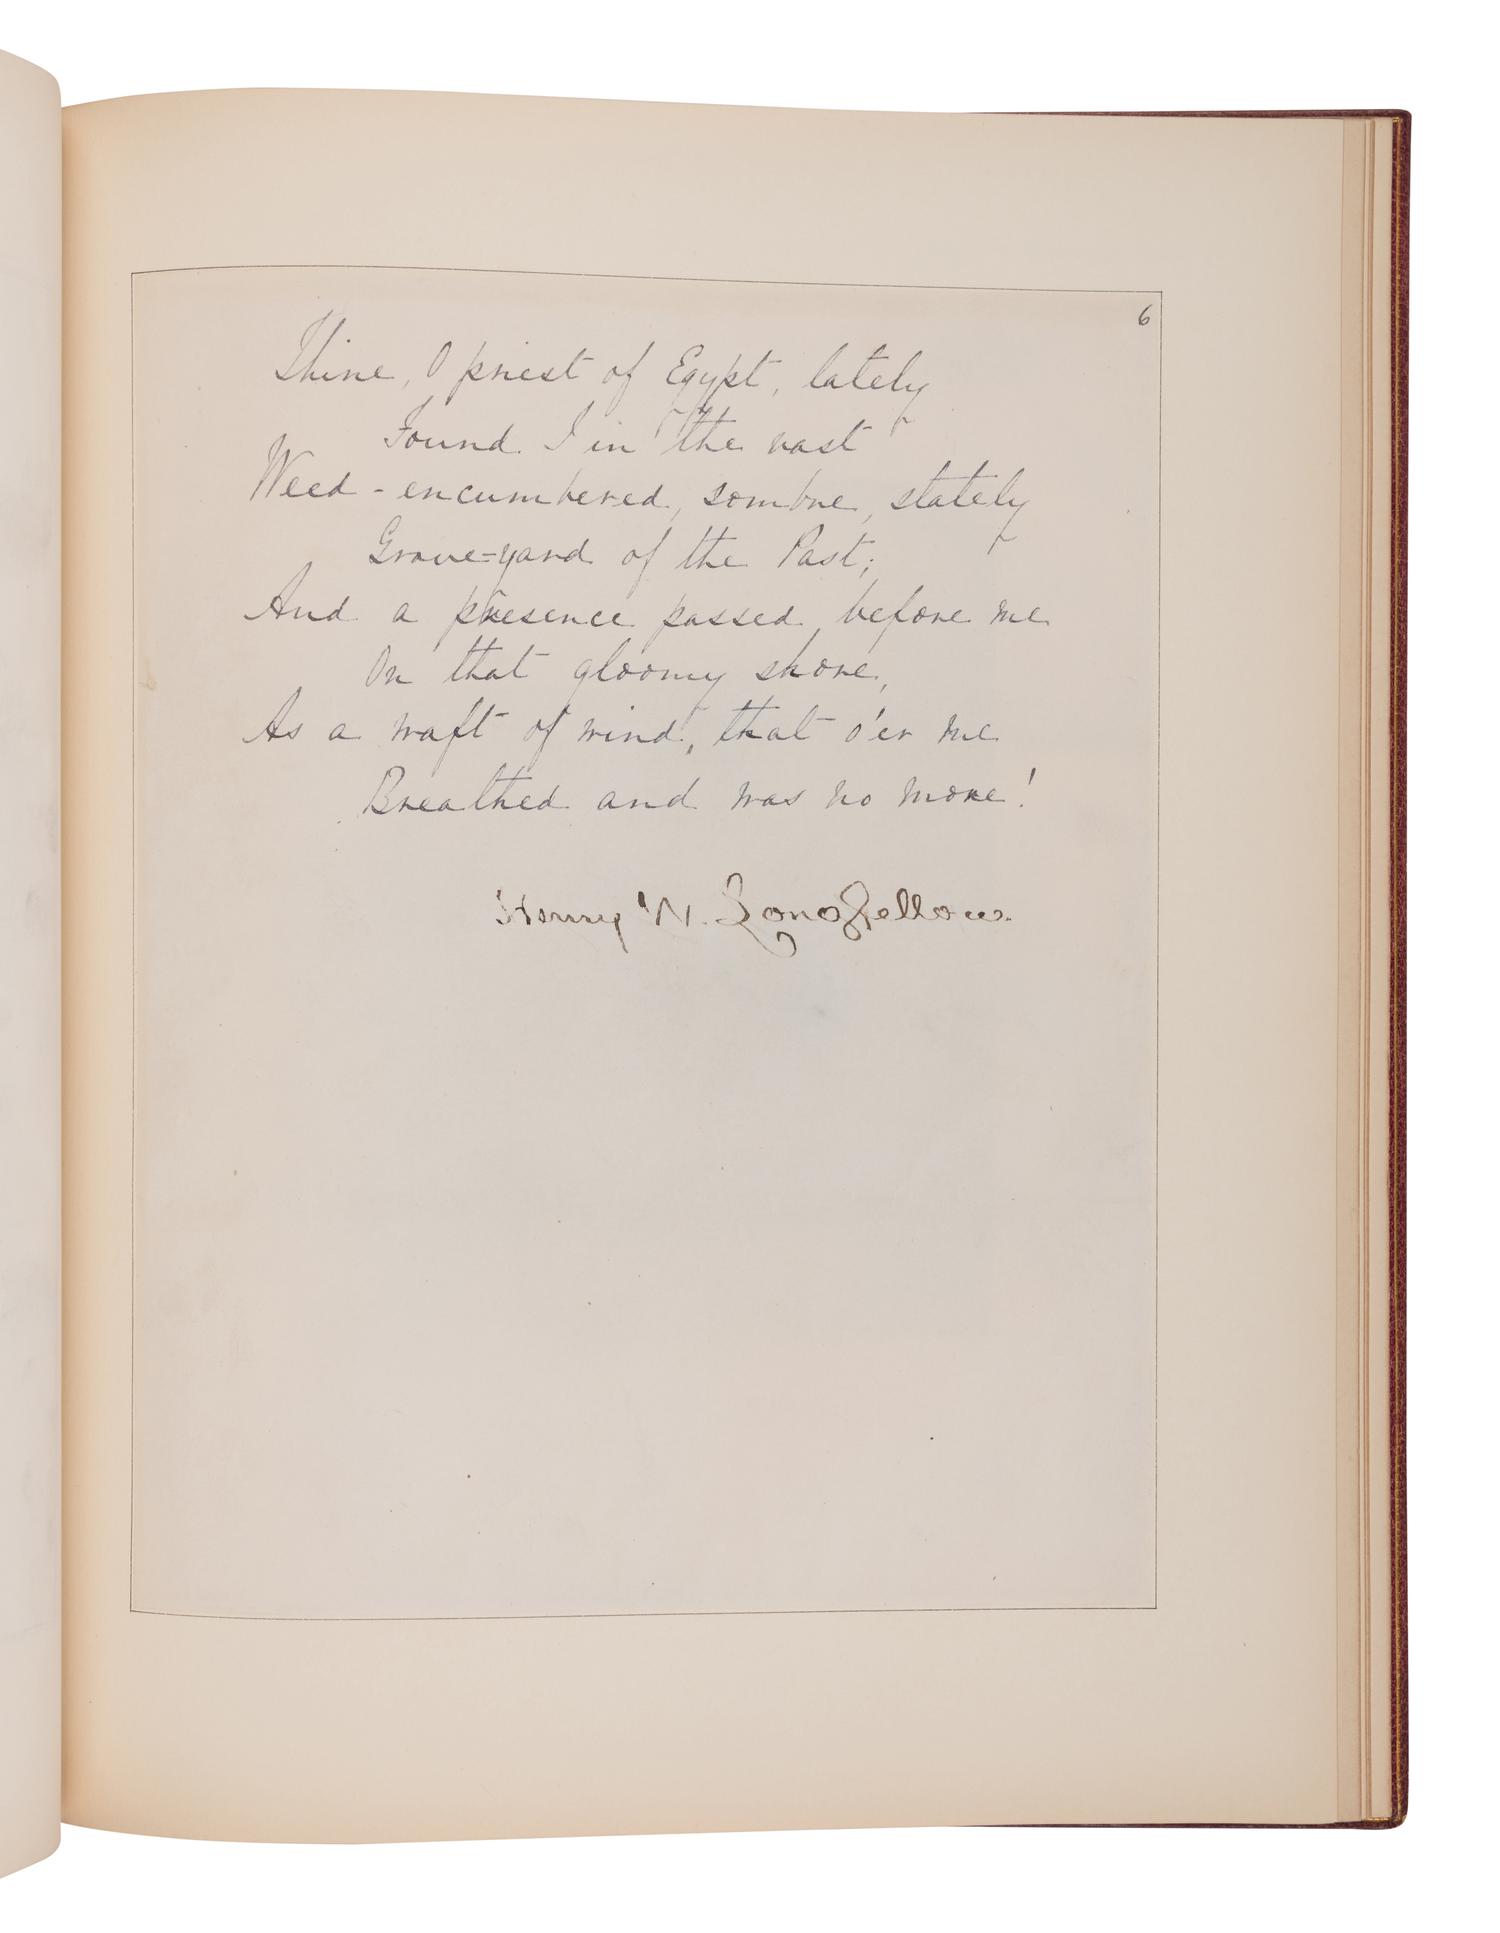 6
Thine, O priest of Egypt, lately
Found I in the vast
Weed-encumbered, sombre, stately
Grave-yard of the Past;
And a presence passed before me
On that gloomy shore,
As a waft of wind, that o'er me
Breathed and was no more!
Henry W. Longfellow.